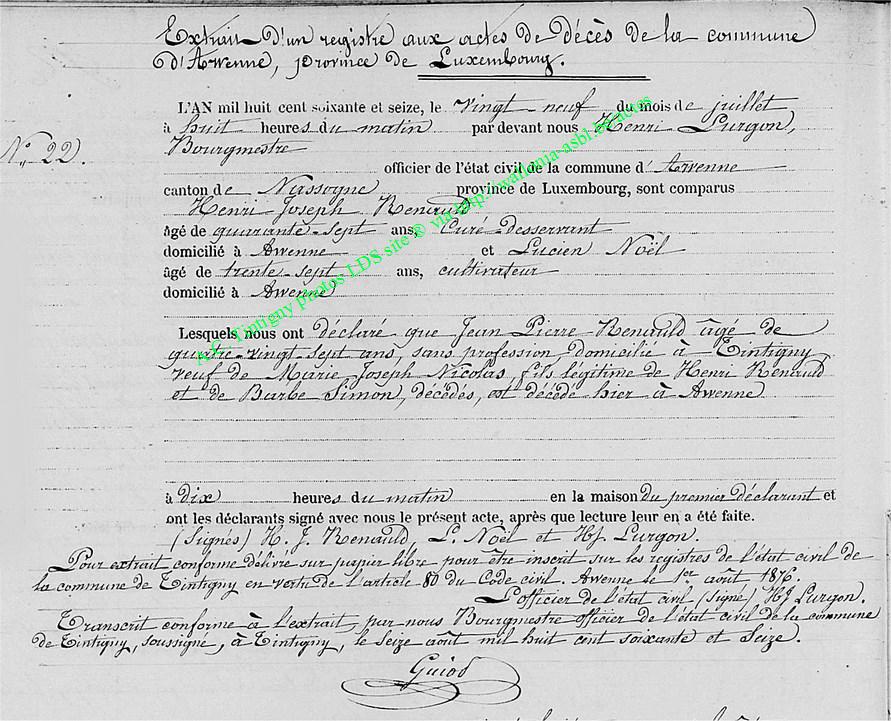 Extrait d'un registre aux actes de décès de la commune
d'Awenne, province de Luxembourg.
L'AN mil huit cent soixante et seize, le vingt-neuf du mois de juillet
à huit heures du matin par devant nous Henri Lurgon,
N° 22.
Bourgmestre
officier de l'état civil de la commune d'Awenne
canton de Nassogne province de Luxembourg, sont comparus
Henri Joseph Renauld
âgé de quarante-sept ans, Curé-desservant
domicilié à Awenne et Lucien Noël
âgé de trente-sept ans, cultivateur
domicilié à Awenne
A.C. Tintigny photos LDS site ® via http://wallonia-asbl.be/actos
Lesquels nous ont déclaré que Jean Pierre Renauld âgé de
quatre-vingt-sept ans, sans profession domicilié à Tintigny
veuf de Marie Joseph Nicolas, fils légitime de Henri Renauld
et de Barbe Simon, décédés, est décédé hier à Awenne
à dix heures du matin en la maison du premier déclarant et
ont les déclarants signé avec nous le présent acte, après que lecture leur en a été faite.
(Signés) H. J. Renauld, L. Noël et HJ. Lurgon.
Pour extrait conforme délivré sur papier libre pour être inscrit sur les registres de l'état civil de
la commune de Tintigny en vertu de l'article 80 du Code civil. Awenne le 1er août 1876.
L'officier de l'état civil (signé) HJ Lurgon.
Transcrit conforme à l'extrait, par nous Bourgmestre officier de l'état civil de la commune
de Tintigny, soussigné, à Tintigny, le seize août mil huit cent soixante et seize.
Guiod